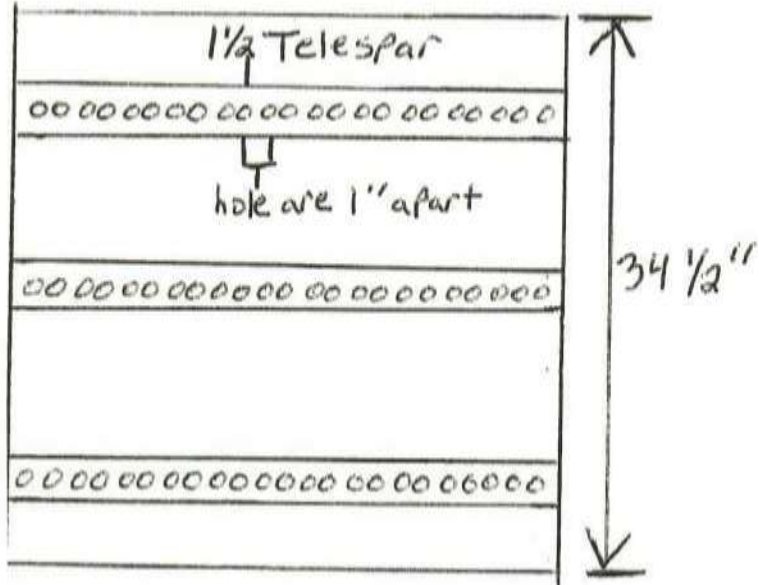 1½ Telespar
hole are 1" apart
34 ½"